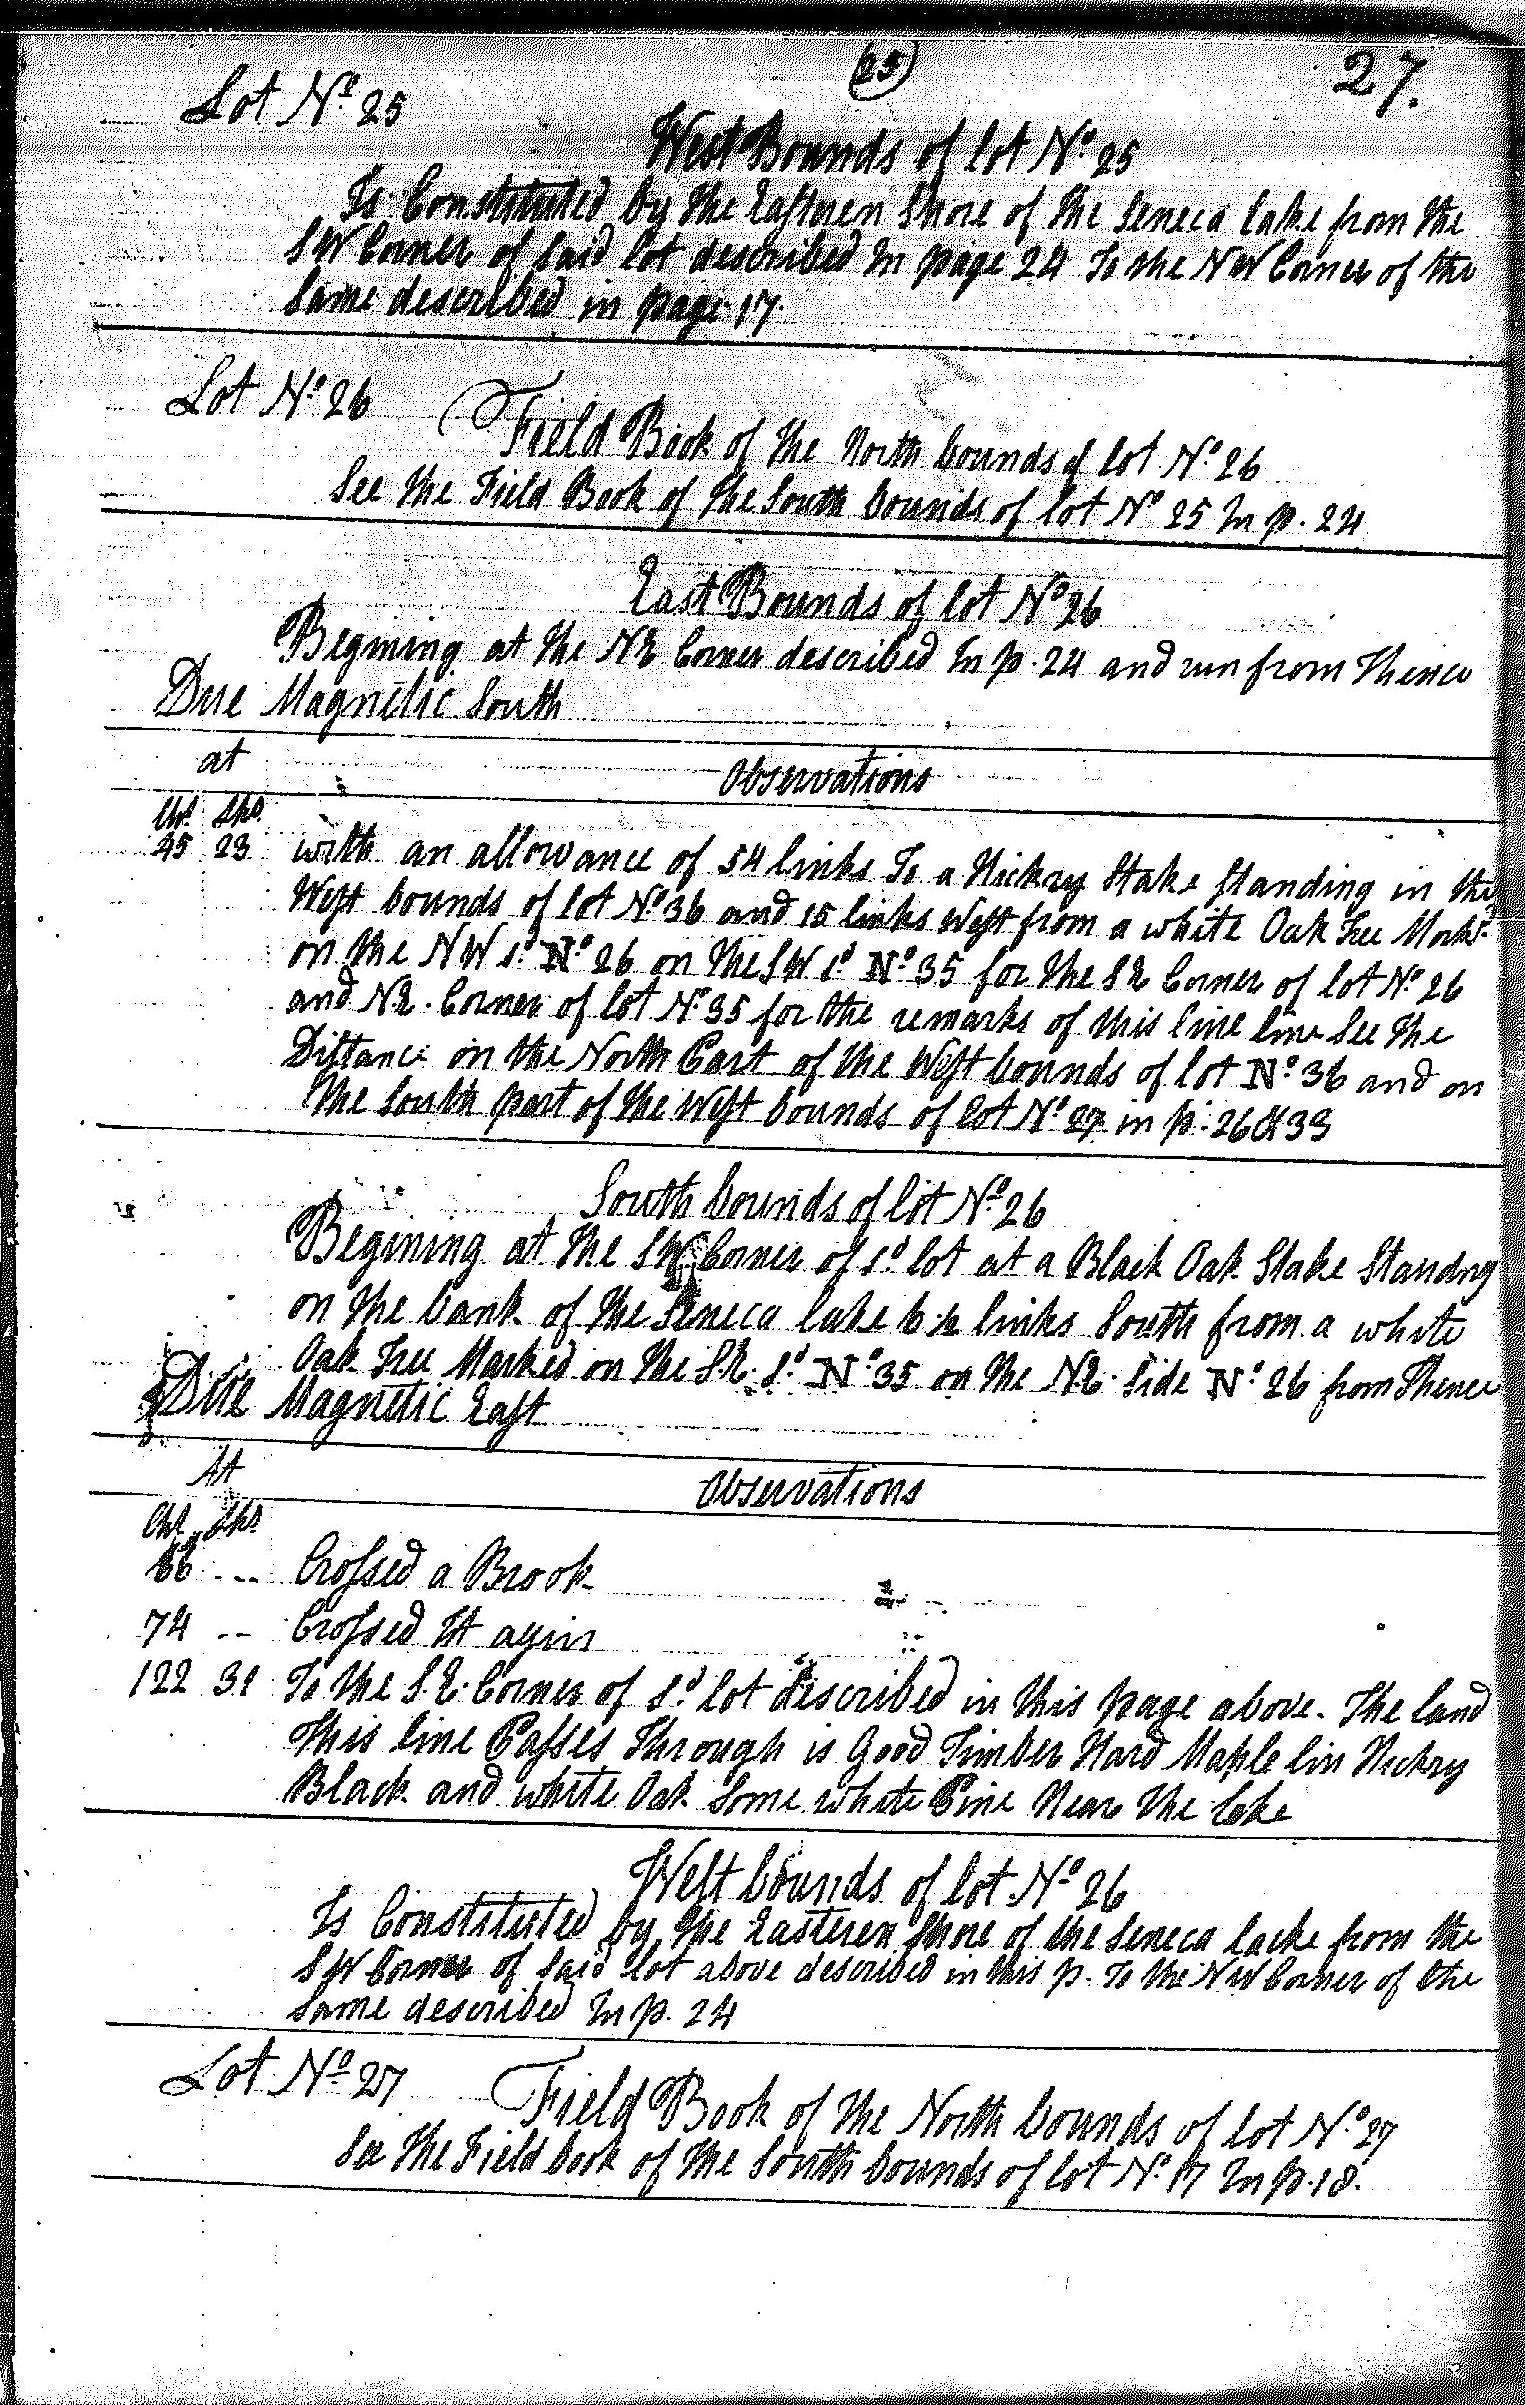 (25) 27.
Lot No. 25
West Bounds of lot No. 25
Is Constituted by the Easteren Shore of the Seneca Lake from the
S W Corner of Said lot described In page 24 To the N W Corner of the
Same described in page 17.
Lot No. 26
Field Book of the North bounds of lot No. 26
See the Field Book of the South bounds of lot No 25 In p. 24
East Bounds of lot No 26
Begining at the N E Corner described In p. 24 and run from Thence
Due Magnetic South
at Observations
Chs. Lks.
45 23 with an allowance of 54 links To a Hickry Stake Standing in the
West bounds of lot No. 36 and 15 links West from a white Oak Tree Markd.
on the N W sd. No. 26 on the S W sd. No. 35 for the S E Corner of lot No. 26
and N.E. Corner of lot No. 35 for the remarks of this line line See the
Distance on the North Part of the West bounds of lot No. 36 and on
the South part of the West bounds of lot No. 27 in p. 26 & 33
South bounds of lot No. 26
Begining at the S W Corner of sd. lot at a Black Oak Stake Standng
on the bank of the Seneca lake links South from a white
Oak Tree Marked on the S.E. sd. No. 35 on the N.E. Side No. 26 from Thence
Due Magnetic East
At Observations
Chs. Lks
66 -- Crossed a Brook
74 -- Crossed It agin
122 31 To the S.E. Corner of sd. lot described in this page above. The land
This line Passes Through is Good Timber Hard Maple lin Hickry
Black and white Oak Some white Pine Near the lake
West bounds of lot No. 26
Is Constituted by the Easteren Shore of the Seneca lacke from the
S W Corner of Said lot above described in this p. To the N W Corner of the
Same described In p. 24
Lot No. 27
Field Book of the North bounds of lot No. 27
See The Field book of the South bounds of lot No. 17 In p. 18.